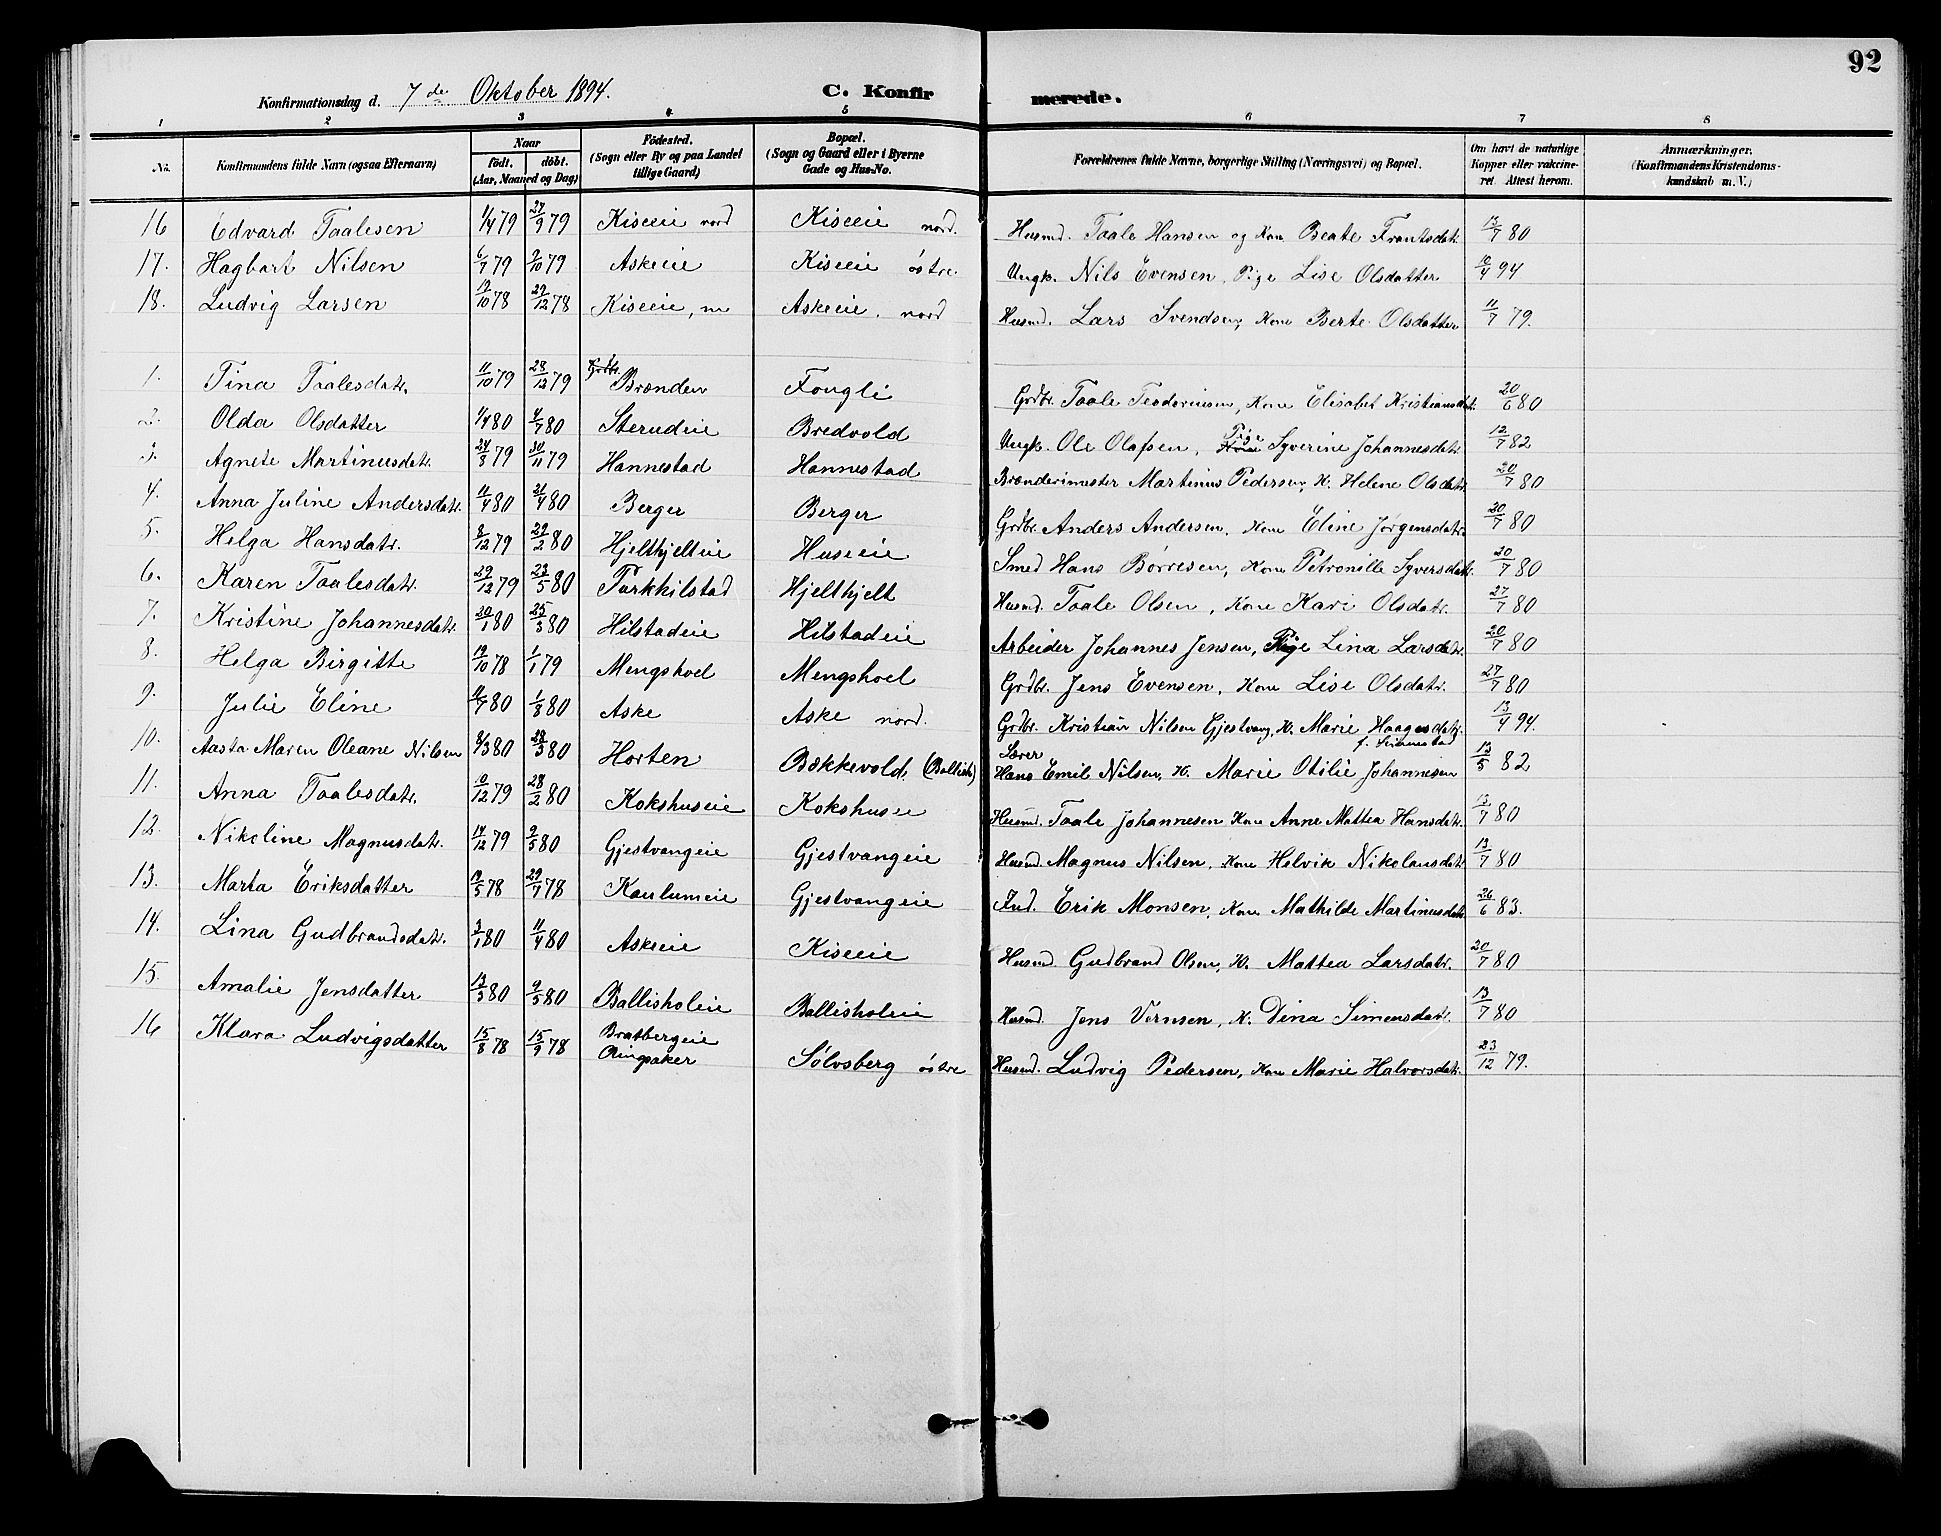 92
Konfirmationsdag d. 7de Oktober 1894. C. Konfirmerede.
1 2 3 4 5 6 7 8
No. Konfirmandens fulde Navn (ogsaa Efternavn) Naar født, døbt. (Aar, Maaned og Dag) Fødested. (Sogn eller By og paa Landet tillige Gaard) Bopæl. (Sogn og Gaard eller i Byerne Gade og Hus-No. Forældrenes fulde Navne, borgerlige Stilling (Næringsvei) og Bopæl. Om havt de naturlige Kopper eller vakcineret. Attest herom. Anmærkninger. (Konfirmandens Kristendomskundskab m. V.)
16 Edvard Taalesen 1/4 79 27/9 79 Kiseeie nord Kiseeie nord. Husmd. Taale Hansen og Kone Beate Frantsdatr. 13/7 80
17. Hagbart Nilsen 6/7 79 9/10 79 Askeeie Kiseeie østre. Ungk. Nils Evensen, Pige Lise Olsdatter 10/4 94
18. Ludvig Larsen 19/10 78 29/12 78 Kiseeie, Askeeie, nord Husmd. Lars Svendsen, Kone Berte Olsdatter 11/7 79.
1. Tina Taalesdatr. 11/10 79 28/12 79 Brænden Fougli Grdbr. Taale Teodorinsen, Kone Elisabet Kristiansdat. 20/6 80
2. Olda Olsdatter 1/4 80 4/7 80 Sterudeie Bredvold Ungk. Ole Olafsen, Pige Syverine Johannesdatr. 12/7 82
3. Agnete Martinusdatr. 24/3 79 30/11 79 Hannestad Hannestad Brænderimester Martinus Pedersen, K. Helene Olsdatr. 20/7 80
4. Anna Juline Andersdatr. 11/4 80 21/4 80 Berger Berger Grdbr. Anders Andersen, Kone Eline Jørgensdatr. 20/7 80
5. Helga Hansdatr. 8/12 79 29/2 80 Hjelthjelteie Huseeie Smed Hans Børresen, Kone Petronille Syversdatr. 20/7 80
6. Karen Taalesdatr. 29/12 79 23/5 80 Torkkilstad Hjelthjelt Husmd. Taale Olsen, Kone Kari Olsdatr. 27/7 80
7. Kristine Johannesdatr. 20/1 80 25/3 80 Hilstadeie Hilstadeie Arbeider Johannes Jensen, Pige Lina Larsdatr. 20/7 80
8. Helga Birgitte 19/10 78 1/1 79 Mengshoel Mengshoel Grdbr. Jens Evensen, Kone Lise Olsdatr. 27/7 80
9. Julie Eline 80 1/8 80 Aske Aske nord. Grdbr. Kristian Nilsen Gjestvang, K. Marie Haagesdatr. 13/4 94.
10. Aasta Maren Oleane Nilsen 8/3 80 28/3 80 Horten Bækkevold. Hans Emil Nilsen, K. Marie Otilie Johannesen 13/5 82
11. Anna Taalesdatr. 10/12 79 28/2 80 Kokshuseie Kokshuseie Husmd. Taale Johannesen Kone Anne Mattea Hansdatr. 13/7 80
12. Nikoline Magnusdatr. 14/12 79 9/5 80 Gjestvangeie Gjestvangeie Husmd. Magnus Nilsen, Kone Helvik Nikolausdatr. 13/7 80
13. Marta Eriksdatter 19/5 78 29/7 78 Kaulumeie Gjestvangeie Ind. Erik Monsen, Kone Mathilde Martinusdatr. 26/6 83.
14. Lina Gudbrandsdatr. 3/1 80 11/4 80 Askeeie Kiseeie Husmd. Gudbrand Olsen, K. Mattea Larsdatr. 20/7 80
15. Amalie Jensdatter 13/3 80 9/5 80 Ballisholeie Ballisholeie Husmd. Jens Vernsen, K. Dina Simensdatr. 13/7 80
16 Klara Ludvigsdatter 15/8 78 15/9 78 Bratbergeie Ringsaker Sølvsberg østre Husmd. Ludvig Pedersen, Kone Marie Halvorsdatr. 23/12 79.